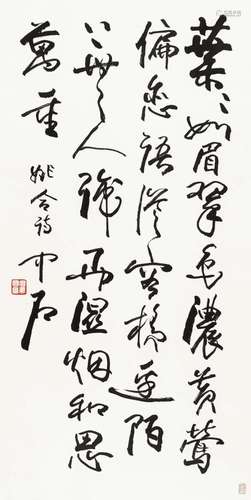 葉〻如眉翠色濃黄鶯
偏恋語從容橋邊陌
上無人識雨湿烟和思
萬重 姚合詩 中石